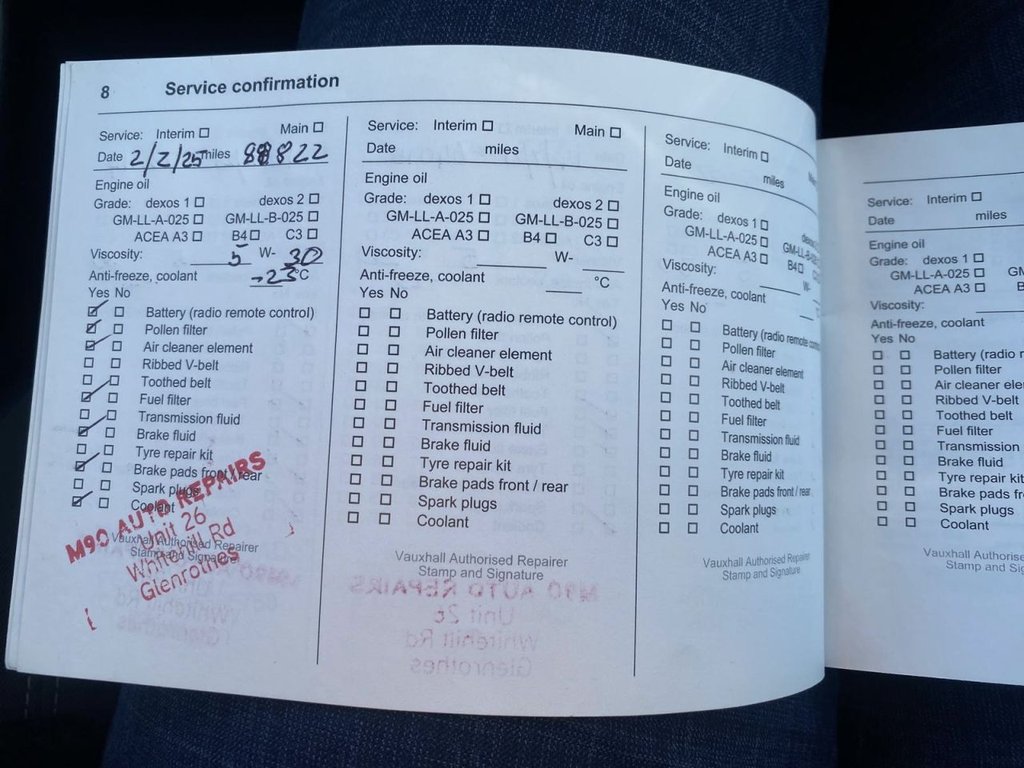 8 Service confirmation
Service: Interim Main
Date 2/2/25 miles 88822
Engine oil
Grade: dexos 1 dexos 2
GM-LL-A-025 GM-LL-B-025
ACEA A3 B4 C3
Viscosity: 5 W- 30
Anti-freeze, coolant -25 °C
Yes No
Battery (radio remote control)
Pollen filter
Air cleaner element
Ribbed V-belt
Toothed belt
Fuel filter
Transmission fluid
Brake fluid
Tyre repair kit
Brake pads front / rear
Spark plugs
Coolant
Vauxhall Authorised Repairer
Stamp and Signature
M90 AUTO REPAIRS
Unit 26
Whitehill Rd
Glenrothes
Service: Interim Main
Date miles
Engine oil
Grade: dexos 1 dexos 2
GM-LL-A-025 GM-LL-B-025
ACEA A3 B4 C3
Viscosity: W-
Anti-freeze, coolant °C
Yes No
Battery (radio remote control)
Pollen filter
Air cleaner element
Ribbed V-belt
Toothed belt
Fuel filter
Transmission fluid
Brake fluid
Tyre repair kit
Brake pads front / rear
Spark plugs
Coolant
Vauxhall Authorised Repairer
Stamp and Signature
Service: Interim
Date miles
Engine oil
Grade: dexos 1
GM-LL-A-025 GM-LL-B
ACEA A3 B4
Viscosity: W-
Anti-freeze, coolant
Yes No
Battery (radio remote con
Pollen filter
Air cleaner element
Ribbed V-belt
Toothed belt
Fuel filter
Transmission fluid
Brake fluid
Tyre repair kit
Brake pads front / rear
Spark plugs
Coolant
Vauxhall Authorised Repairer
Stamp and Signature
Service: Interim
Date miles
Engine oil
Grade: dexos 1
GM-LL-A-025 G
ACEA A3 B
Viscosity:
Anti-freeze, coolant
Yes No
Battery (radio r
Pollen filter
Air cleaner ele
Ribbed V-belt
Toothed belt
Fuel filter
Transmission
Brake fluid
Tyre repair kit
Brake pads fr
Spark plugs
Coolant
Vauxhall Authorise
Stamp and Sig